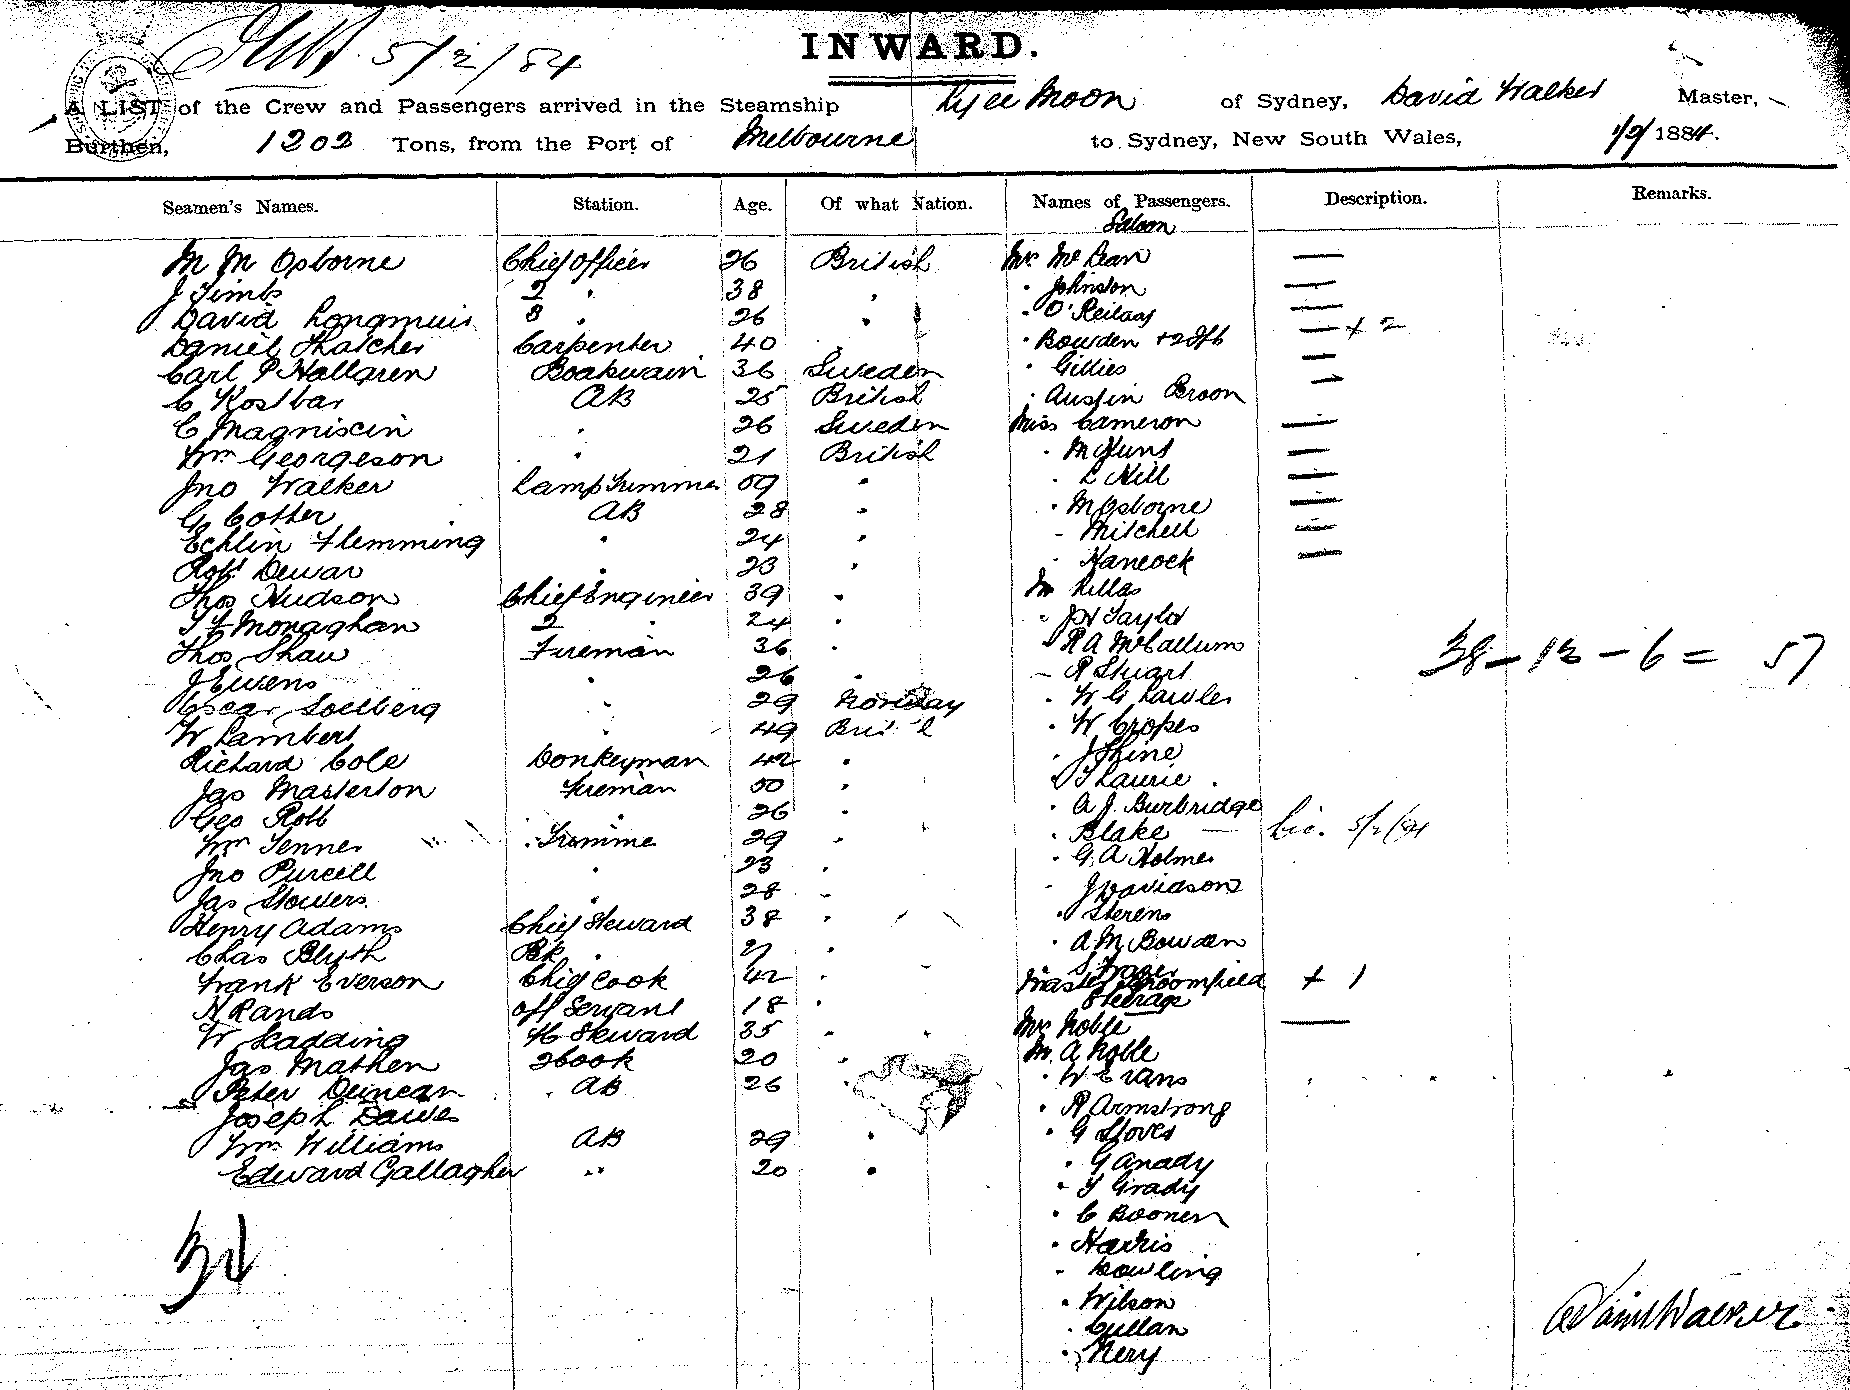 5/2/84
INWARD.
A LIST of the Crew and Passengers arrived in the Steamship Ly ee Moon of Sydney, David Walker Master,
Burthen, 1202 Tons, from the Port of Melbourne to Sydney, New South Wales, 1/2/1884.
Seamen's Names. Station. Age. Of what Nation. Names of Passengers. Description. Remarks.
Saloon
M M Osborne Chief Officer 26 British Mrs McLean —
J Timbs 2 " 38 " " Johnston —
David Longmuir 3 " 26 " " O'Reilly —
Daniel Thatcher Carpenter 40 " " Bowden — + 2
Carl P Hallgren Boatswain 36 Sweden " Gillies —
C Kostbar AB 25 British " Austin Broon —
C Magniscin " 26 Sweden Miss Cameron —
Wm Georgeson " 21 British " M Hunt —
Jno Walker Lamp Trimmer 59 " " L Hill —
G Cotter AB 28 " " M Osborne —
Echlin Flemming " 24 " " Mitchell —
Robt Dewar " 23 " " Hancock —
Thos Hudson Chief Engineer 39 " Mr Lillas
Monaghan 2 " 24 " " J H Taylor
Thos Shaw Fireman 36 " " R A McCallum
J Ewens " 26 " " R Stuart
38 – 13 – 6 = 57
Oscar Soelberg " 29 Norway " W G Lawler
W Lambert " 49 British " W Cropes
Richard Cole Donkeyman 42 " " J Shine
Jas Masterton Fireman 50 " " T Laurie
Geo Robb " 26 " " A J Burbridge
Wm Jenner Trimmer 29 " " Blake — 5/2/84
Jno Purcell " 23 " " G A Holmes
Jas Stowers " 28 " " J Davidson
Henry Adams Chief Steward 38 " " Sterens
Chas Blyth Bk " 27 " " A M Bowden
" S Frazer
Frank Everson Chief Cook 42 " Master Broomfield + 1
Steerage
H Rands Off Servant 18 " Mrs Noble —
W Scadding Steward 35 " Mr A Noble
Jas Mathen 2 Cook 20 " " W Evans
Peter Duncan AB 26 " " R Armstrong
Joseph Dawes " G Stoves
Wm Williams AB 29 " " G Anady
Edward Gallagher " 20 " " T Grady
" C Booner
" Harris
" Dowling
" Wilson
" Cullan
" Nery
David Walker